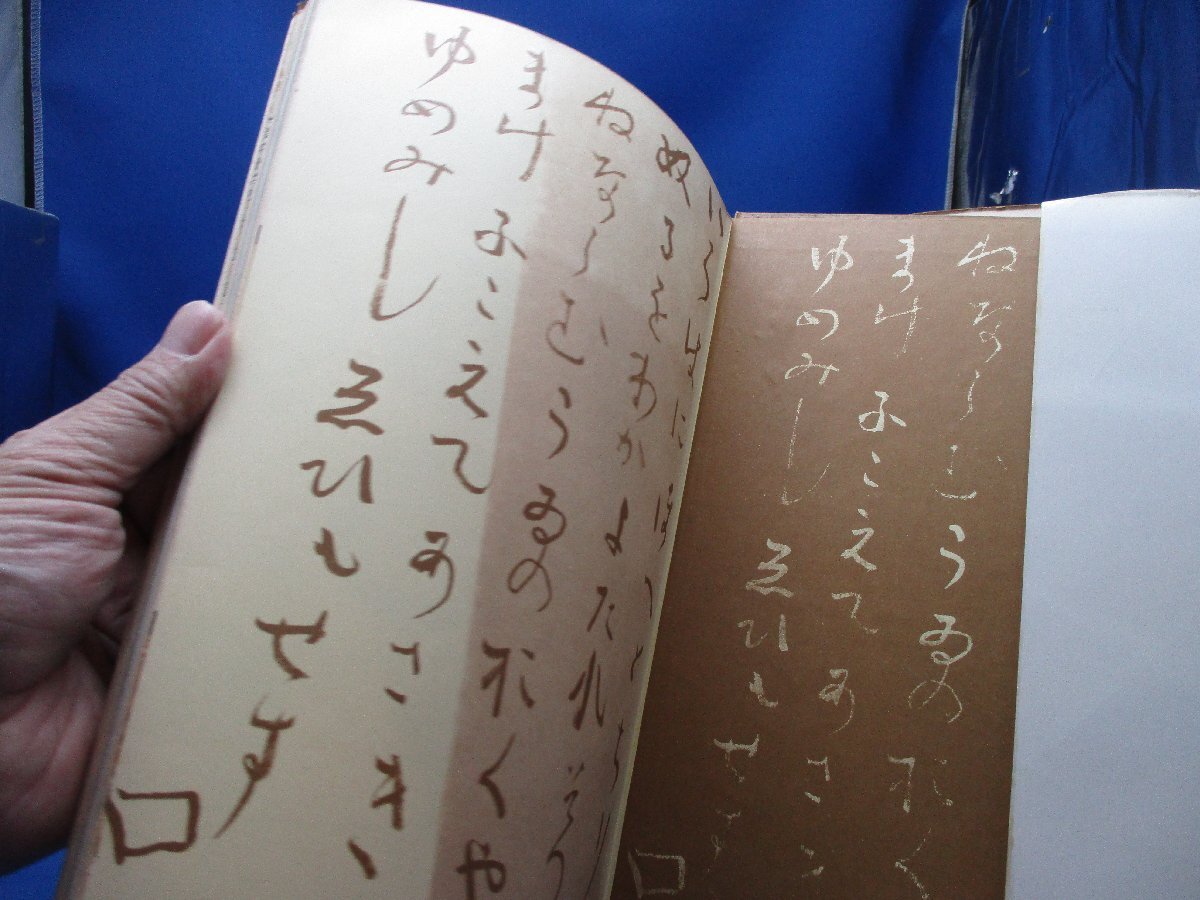 いろはにほへとちり
ぬるをわかよたれそつ
ねならむうゐのおくや
まけふこえてあさき
ゆめみしゑひもせす
ねならむうゐのおく
まけふこえてあさ
ゆめみしゑひもせす